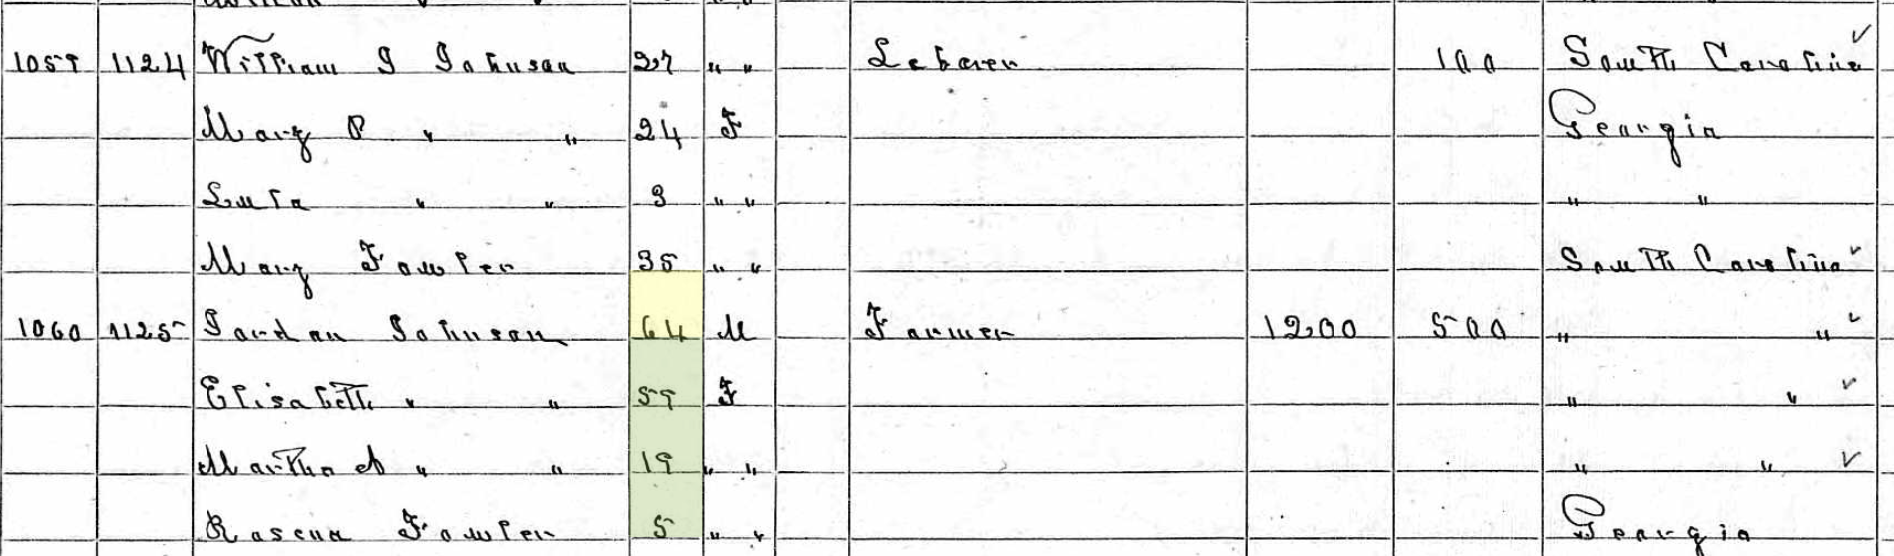 1059 1124 William J Johnson 27 " " Laborer 100 South Carolina ✓
Mary P " " 24 F Georgia
Lula " " 3 " " " "
Mary Fowler 35 " " South Carolina ✓
1060 1125 Jordan Johnson 64 M Farmer 1200 500 " " ✓
Elisabeth " " 59 F " " ✓
Martha A " " 19 " " " " ✓
Fowler 5 " " Georgia